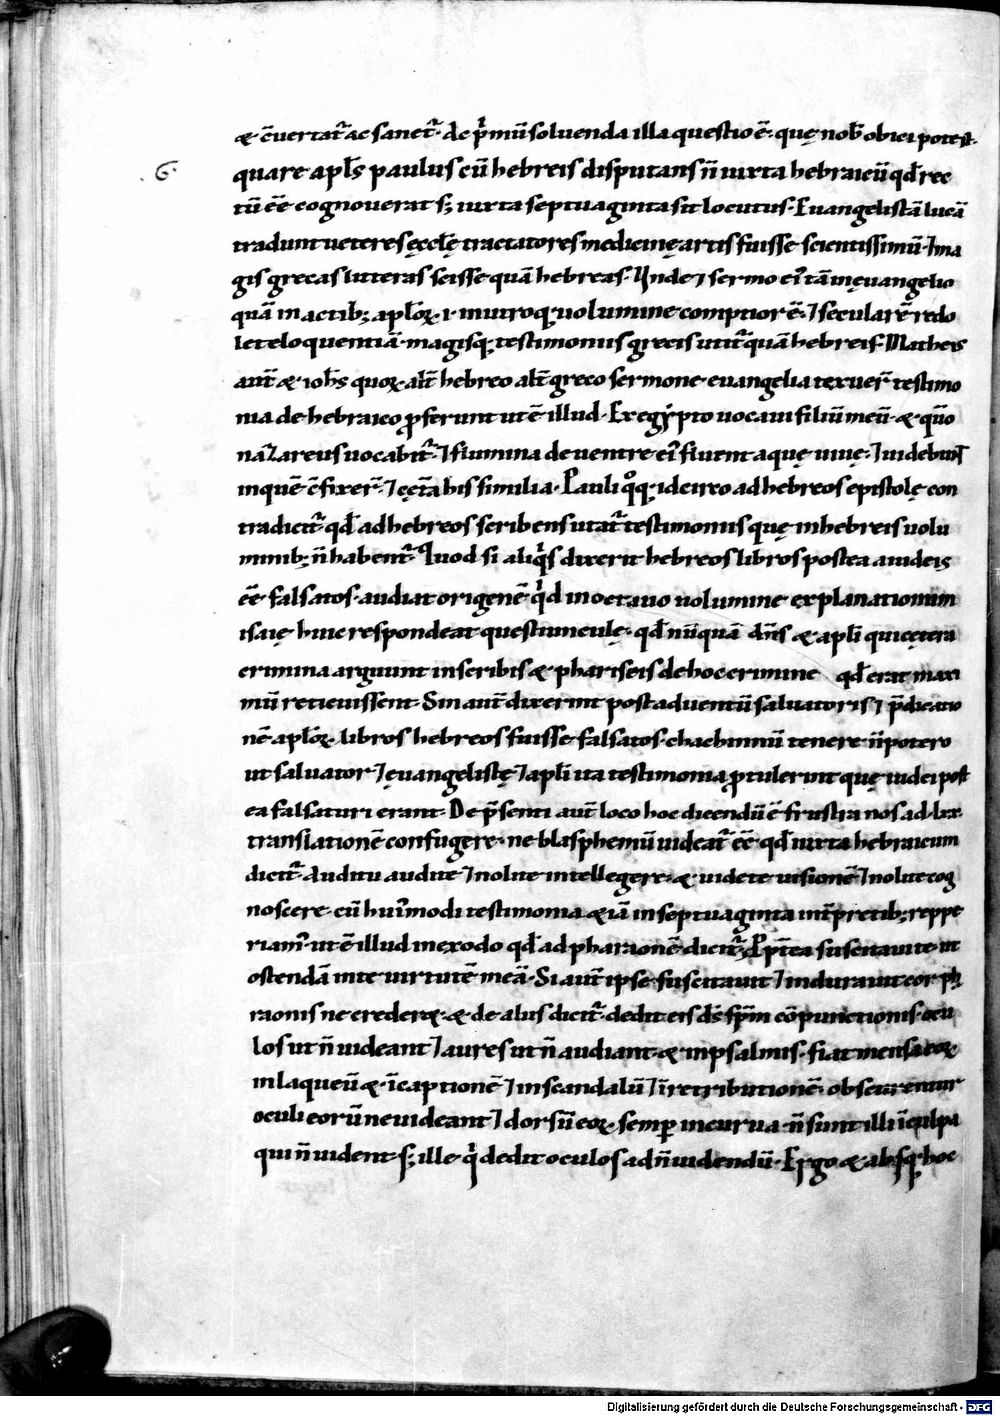 & c̄uertat᷑ ac sanet᷑· de p̄mū soluenda illa questio ē· quę nob̄ obici potest·
.6.
quare apl̄s paulus cū hebreis disputans n̄ iuxta hebraicū qd̄ rec
tū eē cognouerat s; iuxta septuaginta sit locutus· Euangelistā lucā
tradunt ueteres ęccl̄ę tractatores medicinę artis fuisse scientissimū· ⁊ ma
gis grecas litteras scisse quā hebreas· Vnde ⁊ sermo ei᷒ tā in ęuangelio
quā in actib; apl̄oꝝ .i. in utroq; uolumine comptior ē· ⁊ secularē redo
let eloquentiā· magisq; testimoniis grecis utit᷑ quā hebreis· Matheus
aut̄ & ioh̄s quoꝝ alt̄ hebreo alt̄ greco sermone euangelia texuer̄ testimo
nia de hebraico ꝓferunt ut ē illud· Ex egypto uocaui filiū meū· & qm̄o
nā nazareus uocabit᷑· ⁊ flumina de uentre ei᷒ fluent aquę uiuę· ⁊ uidebunt
in quē c̄fixer̄· ⁊ cęt̄a his similia· Pauli q̊q; idcirco ad hebreos epistolę con
tradicit᷑ qd̄ ad hebreos scribens utat᷑ testimoniis quę in hebreis uolu
minib; n̄ habent᷑· Quod si aliqͥs dixerit hebreos libros postea a iudeis
eē falsatos· audiat origenē qͥd in octauo uolumine explanationum
isaię huic respondeat questiunculę· qd̄ nūquā dn̄s & apl̄i qui cętera
crimina arguunt in scribis & phariseis de hoc crimine qd̄ erat maxi
mū reticuissent· Sin aut̄ dixerint post aduentū saluatoris ⁊ p̄dicatio
nē apl̄oꝝ· libros hebreos fuisse falsatos· chachinnū tenere n̄ potero
ut saluator ⁊ ęuangelistę ⁊ apl̄i ita testimonia ꝓtulerint quę iudei post
ea falsaturi erant· De p̄senti aut̄ loco hoc dicendū ē frustra nos ad lxx·
translationē confugere· ne blasphemū uideat᷑ eē qd̄ iuxta hebraicum
dicit᷑· Auditu audite ⁊ nolite intellegere· & uidete uisionē ⁊ nolite cog
noscere· cū hui᷒modi testimonia & iā in septuaginta int̄pretib; reppe
riam᷒· ut ē illud in exodo qd̄ ad pharaonē dicit᷑· Ppt̄ea suscitaui te ut
ostendā in te uirtutē meā· Si aut̄ ipse suscitauit ⁊ indurauit cor ph
raonis ne crederet· & de aliis dicit᷑· dedit eis ds̄ sp̄m cōpunctionis· ocu
los ut n̄ uideant ⁊ aures ut n̄ audiant· & in psalmis· fiat mensa eoꝝ
in laqueū & ī captionē ⁊ in scandalū ⁊ ī retributionē· obscurentur
oculi eorū ne uideant ⁊ dorsū eoꝝ semp̄ incurua· n̄ sunt illi ī culpa
qui n̄ uident· s; ille qͥ dedit oculos ad n̄ uidendū· Ergo & absq; hoc
Digitalisierung gefördert durch die Deutsche Forschungsgemeinschaft - DFG